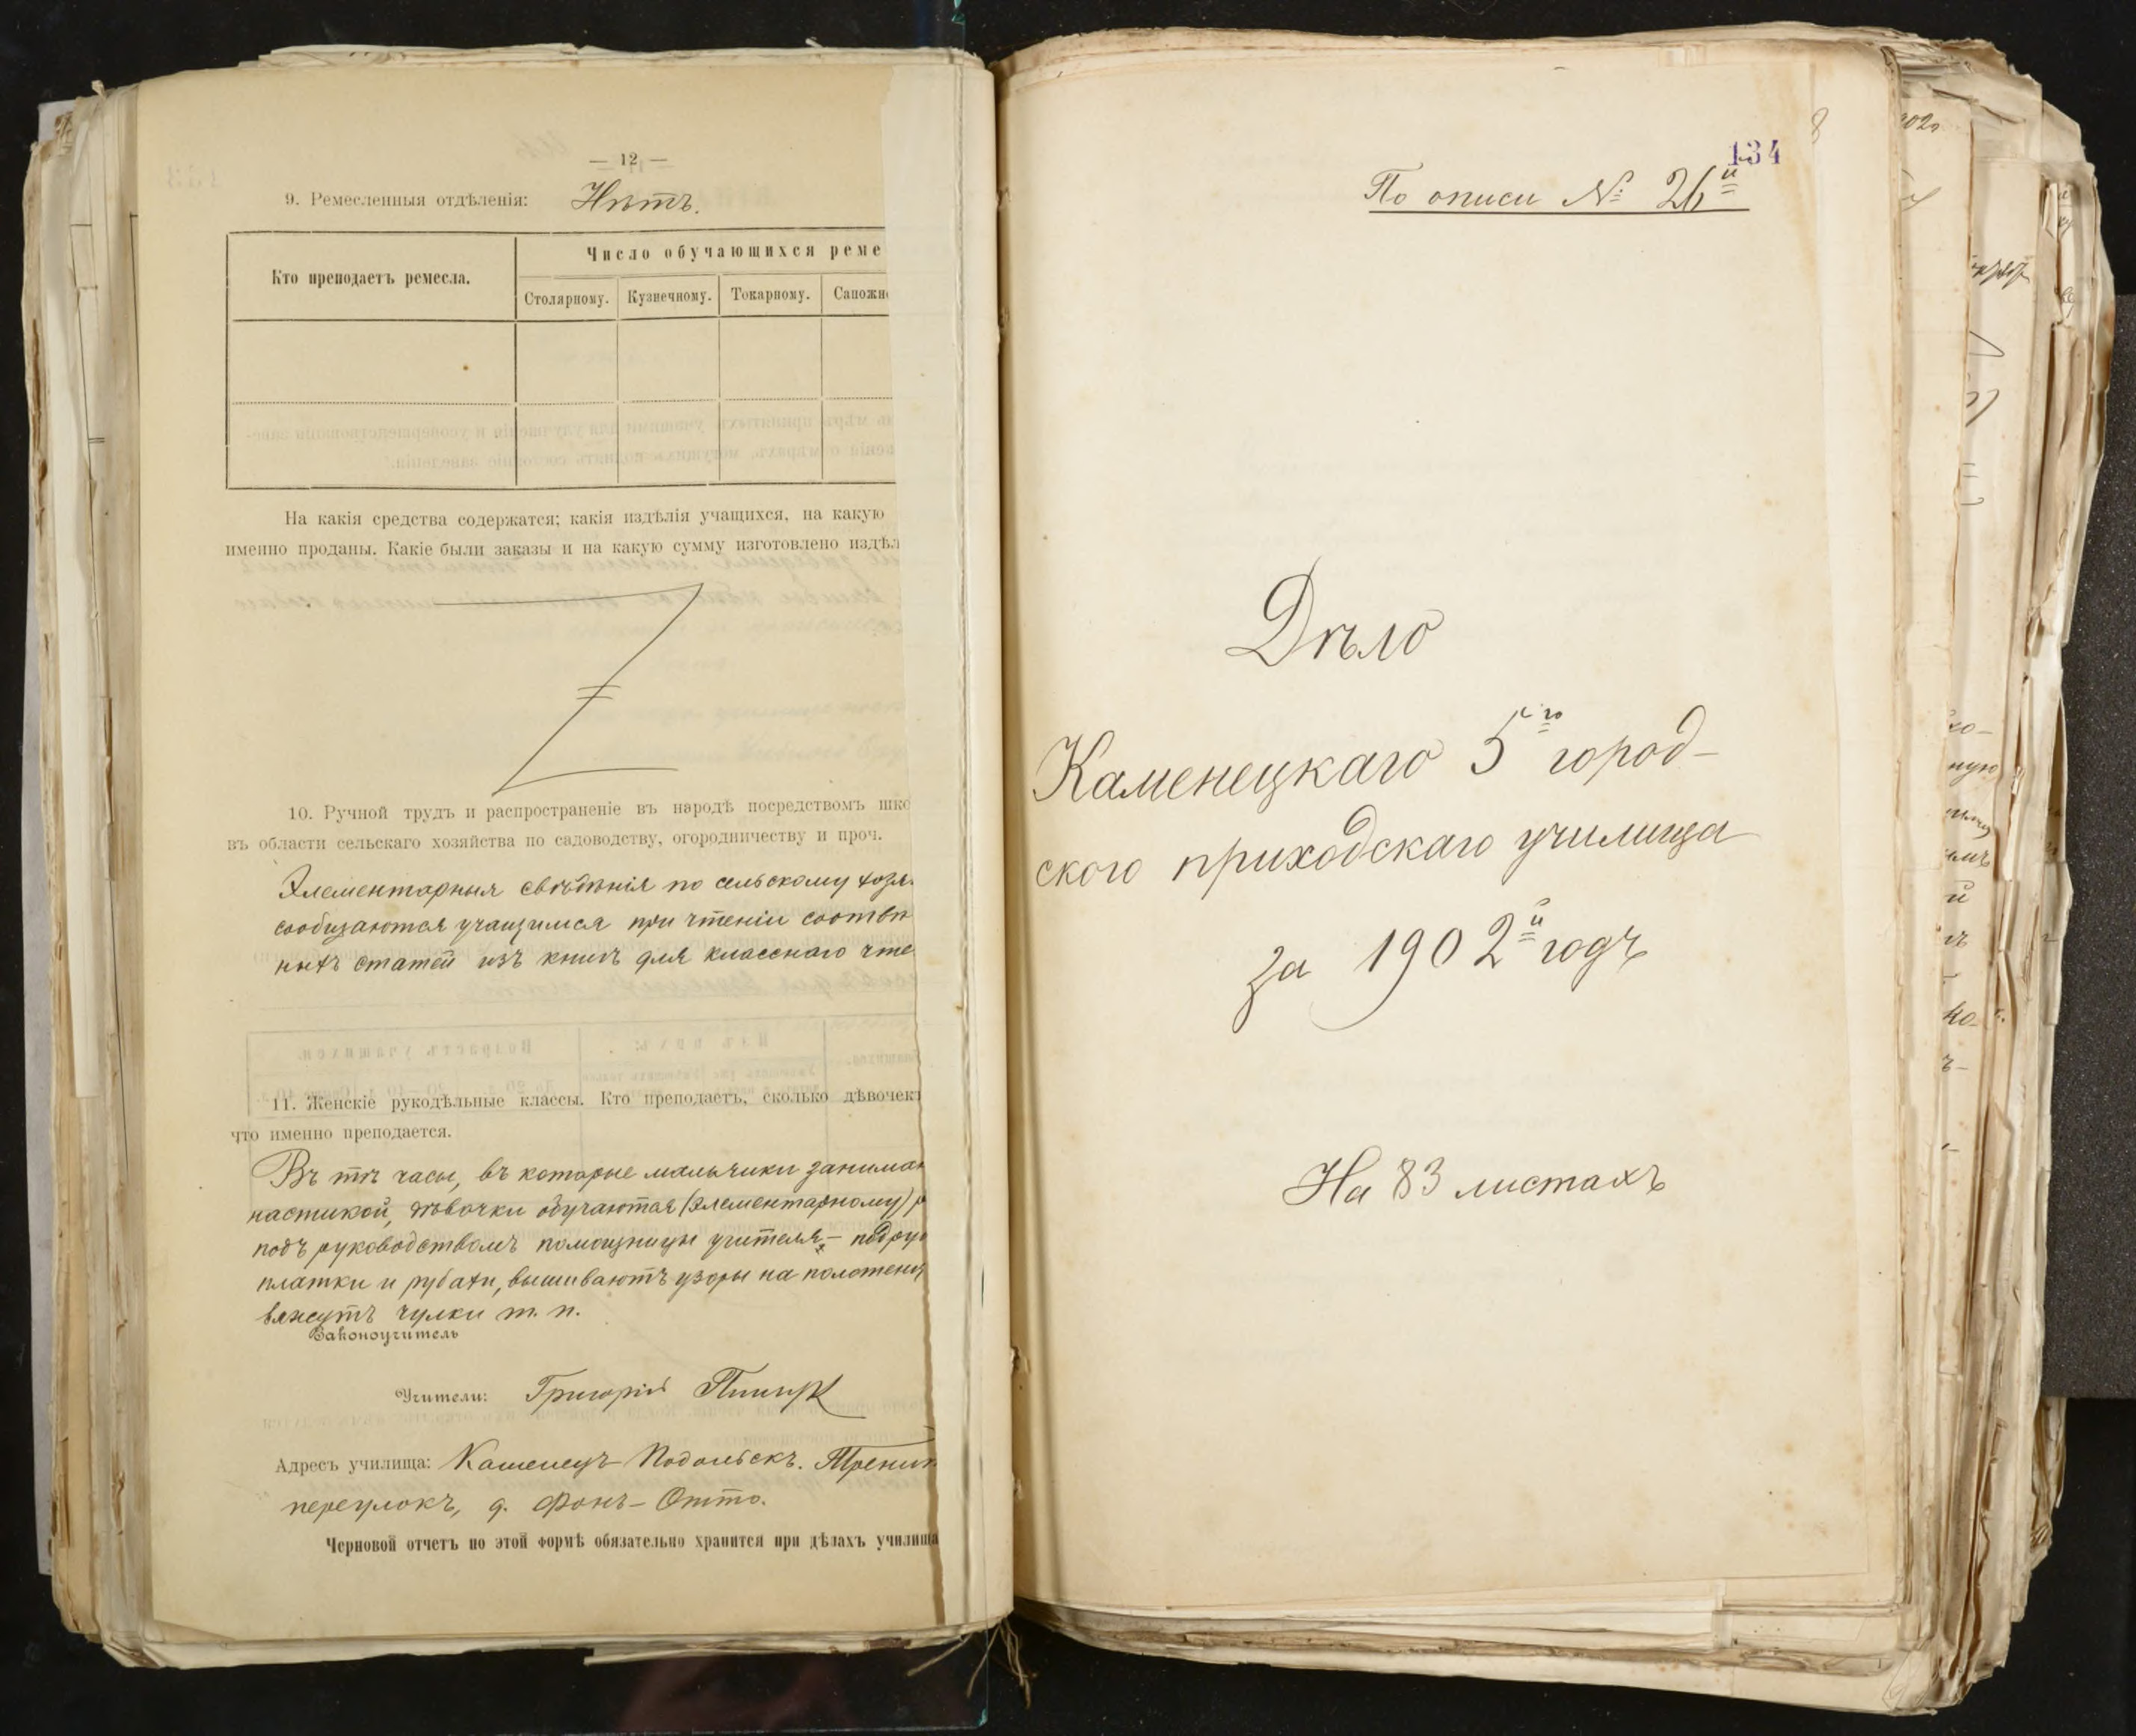 — 12 —
9. Ремесленныя отдѣленія: Нѣтъ.
Кто преподаетъ ремесла.
Число обучающихся реме
Столярному. Кузнечному. Токарному. Сапожн
На какія средства содержатся; какія издѣлія учащихся, на какую
именно проданы. Какіе были заказы и на какую сумму изготовлено издѣл
10. Ручной трудъ и распространеніе въ народѣ посредствомъ шко
въ области сельскаго хозяйства по садоводству, огородничеству и проч.
Элементарныя свѣдѣнія по сельскому хозя
сообщаются учащимся при чтеніи соотвѣ
ныхъ статей изъ книгъ для класснаго чте
11. Женскіе рукодѣльные классы. Кто преподаетъ, сколько дѣвочекъ
что именно преподается.
Въ тѣ часы, въ которые мальчики занима
настикой, дѣвочки обучаются (элементарному) р
подъ руководствомъ помощницы учителя, – подру
платки и рубахи, вышиваютъ узоры на полотен
вяжутъ чулки т. п.
Законоучитель
Учители: Григорій
Адресъ училища: Каменецъ-Подольскъ.
переулокъ, д. Фонъ-Отто.
Черновой отчетъ по этой формѣ обязательно хранится при дѣлахъ училища
134
8
По описи № 26й
Дѣло
Каменецкаго 5го город-
ского приходскаго училища
за 1902й годъ
На 83 листахъ